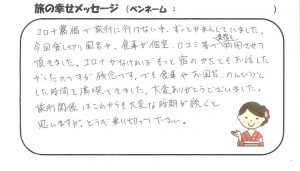 旅の幸せメッセージ（ペンネーム：　　　　）
コロナ蔓延で旅行に行けない中、ずっとがまんしていました。
今回貸しきり風呂や、食事が個室、口コミ等で実際に利用させて
頂きました。コロナがなければもっと宿のかたともお話した
かったのですが残念です。でも食事やお風呂、のんびりと
した時間を満喫できました。大変ありがとうございました。
旅行関係はこれからも大変な時期が続くと
思いますが、どうぞ乗り切って下さい。